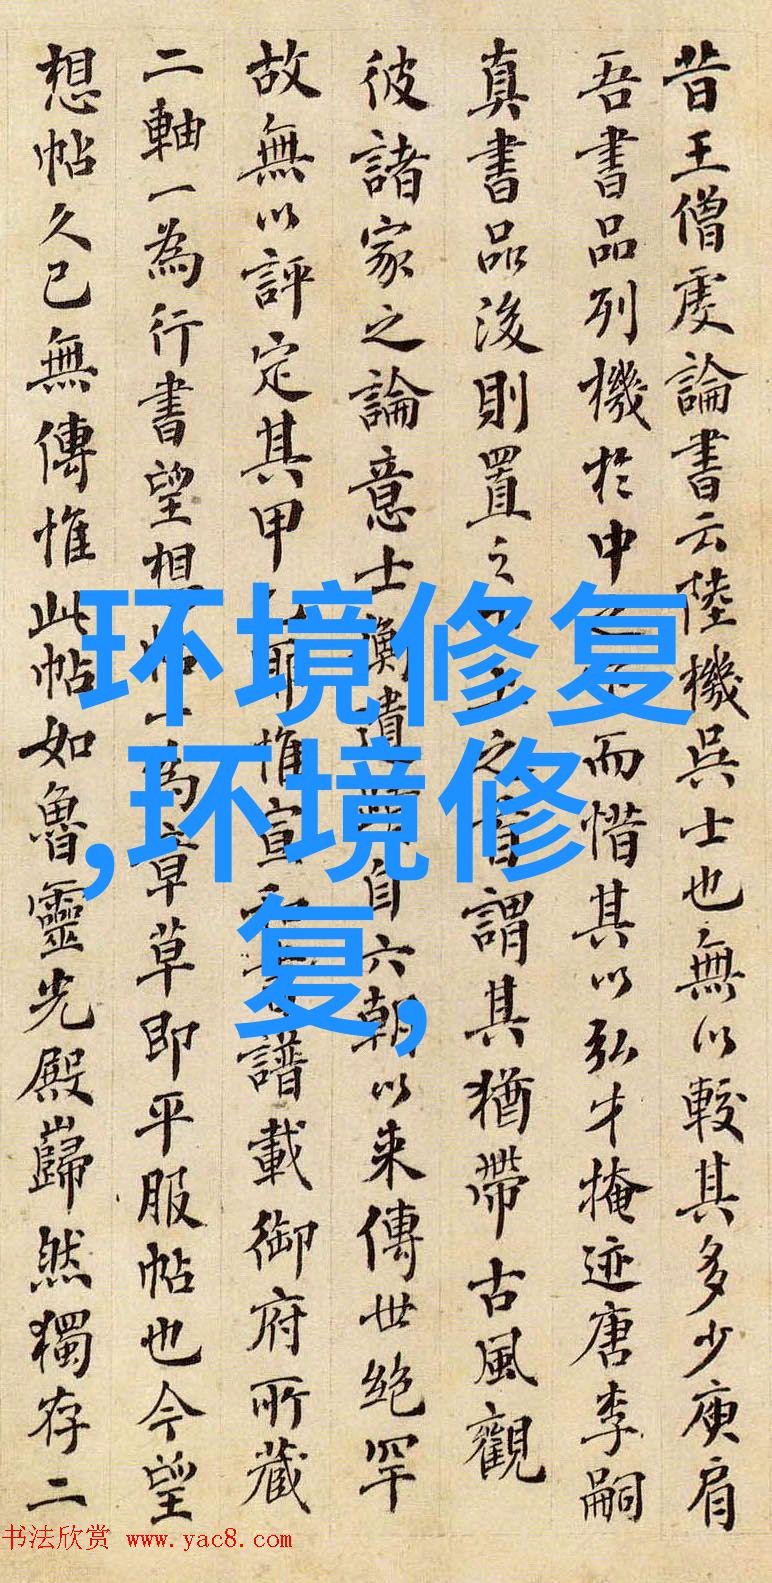 昔王僧虔論書云陸機吳士也無以較其多少庾肩
吾書品列機於中而惜其以弘才掩迹唐李嗣
真書品後則置之之首謂其猶帶古風觀
彼諸家之論意士衡遺自六朝以来傳世絶罕
故無以評定其甲耶惟宣譜載御府所藏
二軸一為行書望想帖一為章草即平服帖也今望
想帖久已無傳惟此帖如魯靈光殿巋然獨存二
环境修复
,环境修
复,
书法欣赏 www.yac8.com